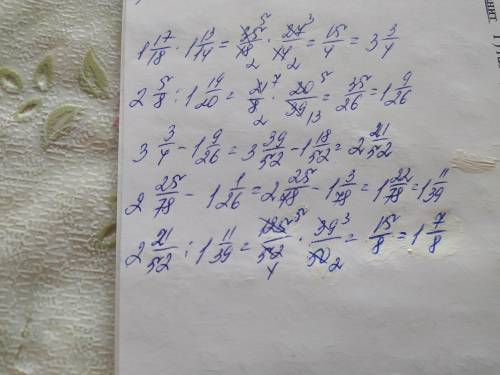 1 17/18 · 1 13/14 = 35⁵/18₂ · 27³/14₂ = 15/4 = 3 3/4
2 5/8 : 1 19/20 = 21⁷/8₂ · 20⁵/39₁₃ = 35/26 = 1 9/26
3 3/4 - 1 9/26 = 3 39/52 - 1 18/52 = 2 21/52
2 25/78 - 1 1/26 = 2 25/78 - 1 3/78 = 1 22/78 = 1 11/39
2 21/52 : 1 11/39 = 125⁵/52₄ · 39³/50₂ = 15/8 = 1 7/8